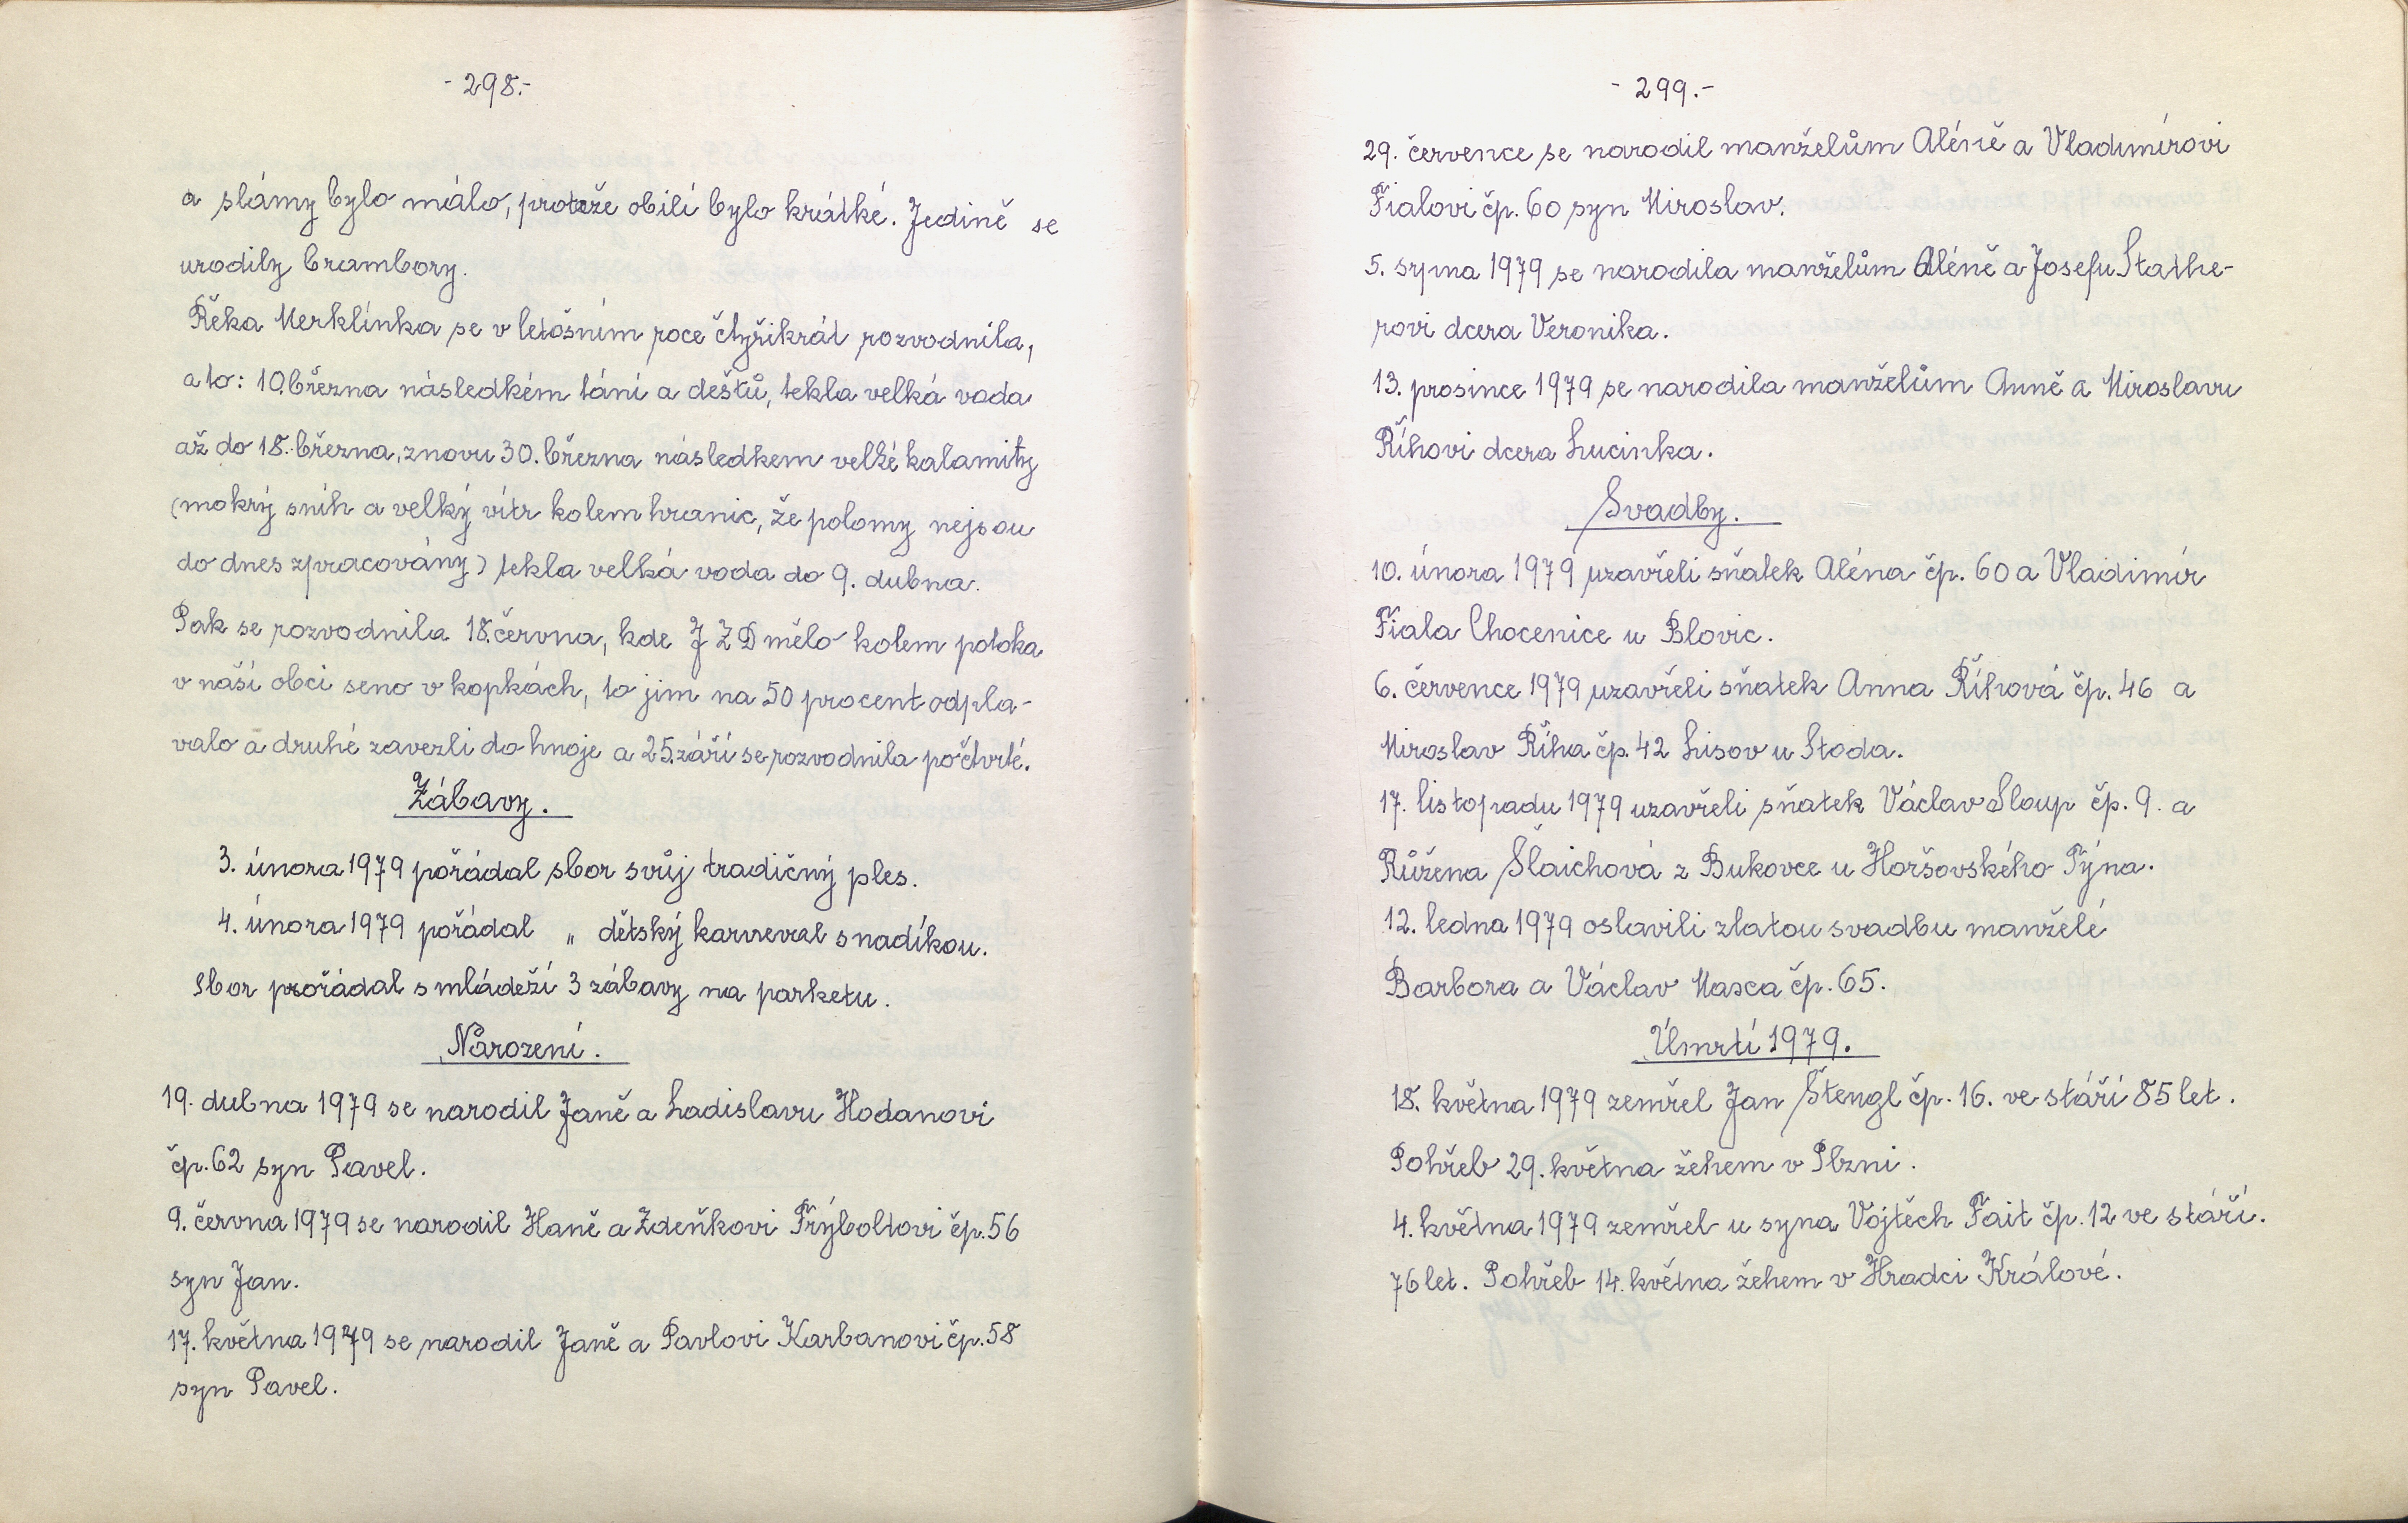 - 298.-
a slámy bylo málo, protože obilí bylo krátké. Jedině se
urodily brambory.
Řeka Merklínka se v letošním roce čtyřikrát rozvodnila,
a to: 10.března následkém tání a dešťů, tekla velká voda
až do 18. března, znovu 30. března následkem velké kalamity
(mokrý sníh a velký vítr kolem hranic, že polomy nejsou
do dnes zpracovány) tekla velká voda do 9. dubna.
Pak se rozvodnila 18.června, kde JZD mělo kolem potoka
v naší obci seno v kopkách, to jim na 50 procent odpla-
valo a druhé zavezli do hnoje a 25.září se rozvodnila počtvrté.
Zábavy.
3. února 1979 pořádal sbor svůj tradičný ples.
4. února 1979 pořádal „ dětský karneval s nadíkou.
Sbor pořádal s mládeží 3 zábavy na parketu.
Narození.
19. dubna 1979 se narodil Janě a Ladislavu Hodanovi
čp. 62 syn Pavel.
9. června 1979 se narodil Haně a Zdeňkovi Frýboltovi čp. 56
syn Jan.
17. května 1979 se narodil Janě a Pavlovi Karbanovi čp. 58
syn Pavel.
- 299.-
29. července se narodil manželům Aléně a Vladimírovi
Fialovi čp. 60 syn Miroslav.
5. srpna 1979 se narodila manželům Aléně a Josefu Stathe-
rovi dcera Veronika.
13. prosince 1979 se narodila manželům Anně a Miroslavu
Říhovi dcera Lucinka.
Svadby.
10. února 1979 uzavřeli sňatek Aléna čp. 60 a Vladimír
Fiala Chocenice u Blovic.
6. července 1979 uzavřeli sňatek Anna Říhová čp. 46 a
Miroslav Říha čp. 42 Lisov u Stoda.
17. listopadu 1979 uzavřeli sňatek Václav Sloup čp. 9. a
Růžena Šlaichová z Bukovce u Horšovského Týna.
12. ledna 1979 oslavili zlatou svadbu manželé
Barbora a Václav Masca čp. 65.
Úmrtí 1979.
18. května 1979 zemřel Jan Štengl čp. 16. ve stáří 85 let.
Pohřeb 29. května žehem v Plzni.
4. května 1979 zemřel u syna Vojtěch Fait čp. 12 ve stáří.
76 let. Pohřeb 14. května žehem v Hradci Králové.